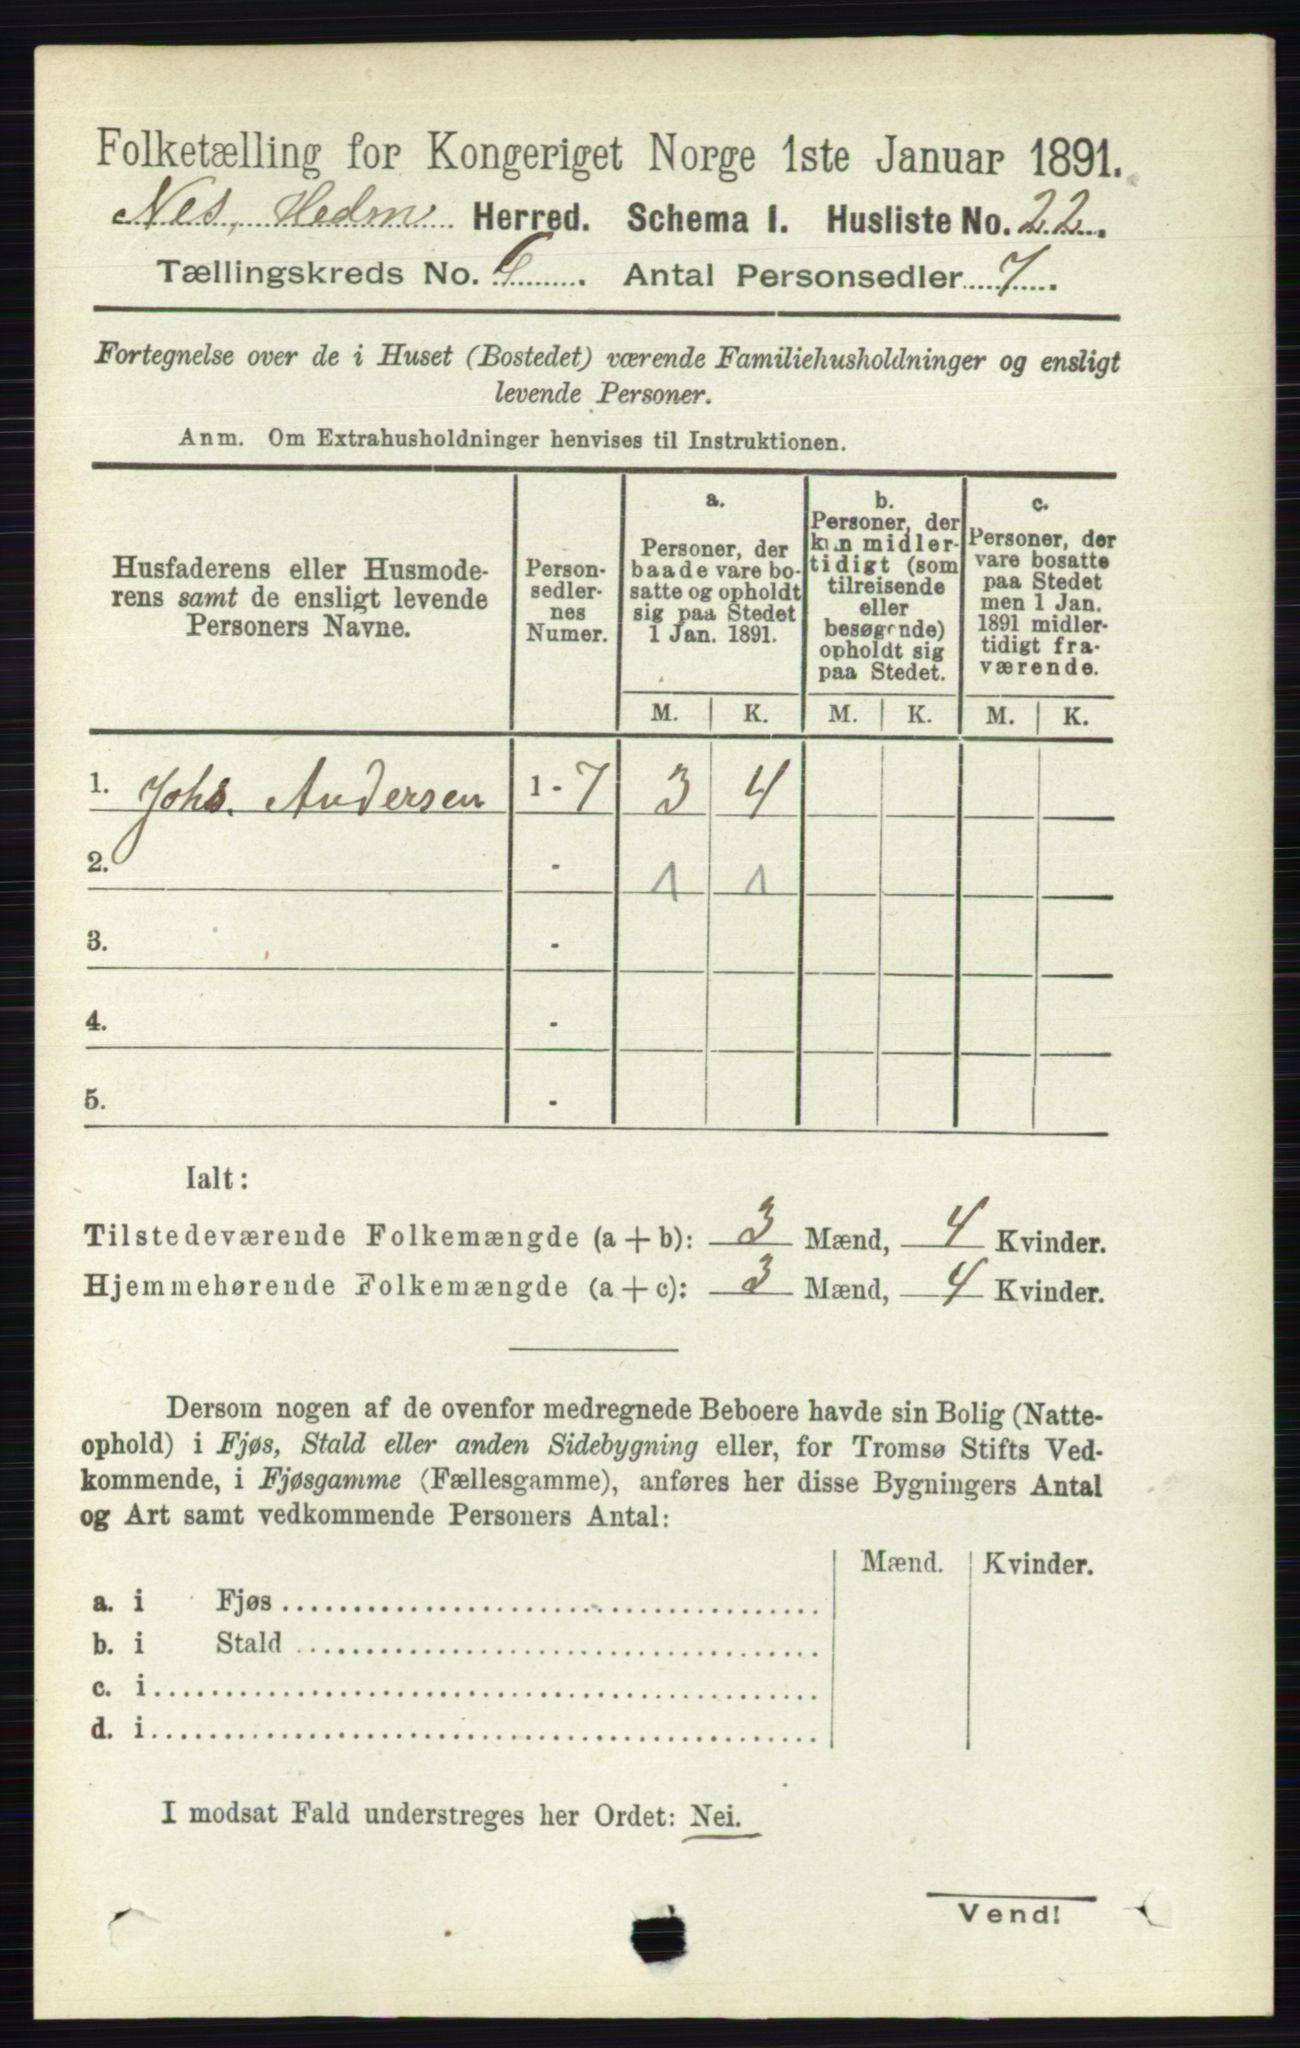 Folketælling for Kongeriget Norge 1ste Januar 1891.
Nes, Hedm Herred. Schema I. Husliste No. 22.
Tællingskreds No. . Antal Personsedler 7.
Fortegnelse over de i Huset (Bostedet) værende Familiehusholdninger og ensligt
levende Personer.
Anm. Om Extrahusholdninger henvises til Instruktionen.
Husfaderens eller Husmode-
rens samt de ensligt levende
Personers Navne.
Person-
sedler-
nes
Numer.
a.
Personer, der
baade vare bo-
satte og opholdt
sig paa Stedet
1 Jan. 1891.
b.
Personer, der
kun midler-
tidigt (som
tilreisende
eller
besøgende)
opholdt sig
paa Stedet.
c.
Personer, der
vare bosatte
paa Stedet
men 1 Jan.
1891 midler-
tidigt fra-
værende.
M. K. M. K. M. K.
1. Johs. Andersen 1 - 7 3 4
2. - 1 1
3. -
4. -
5. -
Ialt:
Tilstedeværende Folkemængde (a + b): 3 Mænd, 4 Kvinder.
Hjemmehørende Folkemængde (a + c): 3 Mænd, 4 Kvinder.
Dersom nogen af de ovenfor medregnede Beboere havde sin Bolig (Natte-
ophold) i Fjøs, Stald eller anden Sidebygning eller, for Tromsø Stifts Ved-
kommende, i Fjøsgamme (Fællesgamme), anføres her disse Bygningers Antal
og Art samt vedkommende Personers Antal:
Mænd. Kvinder.
a. i Fjøs
b. i Stald
c. i
d. i
I modsat Fald understreges her Ordet: Nei.
Vend!